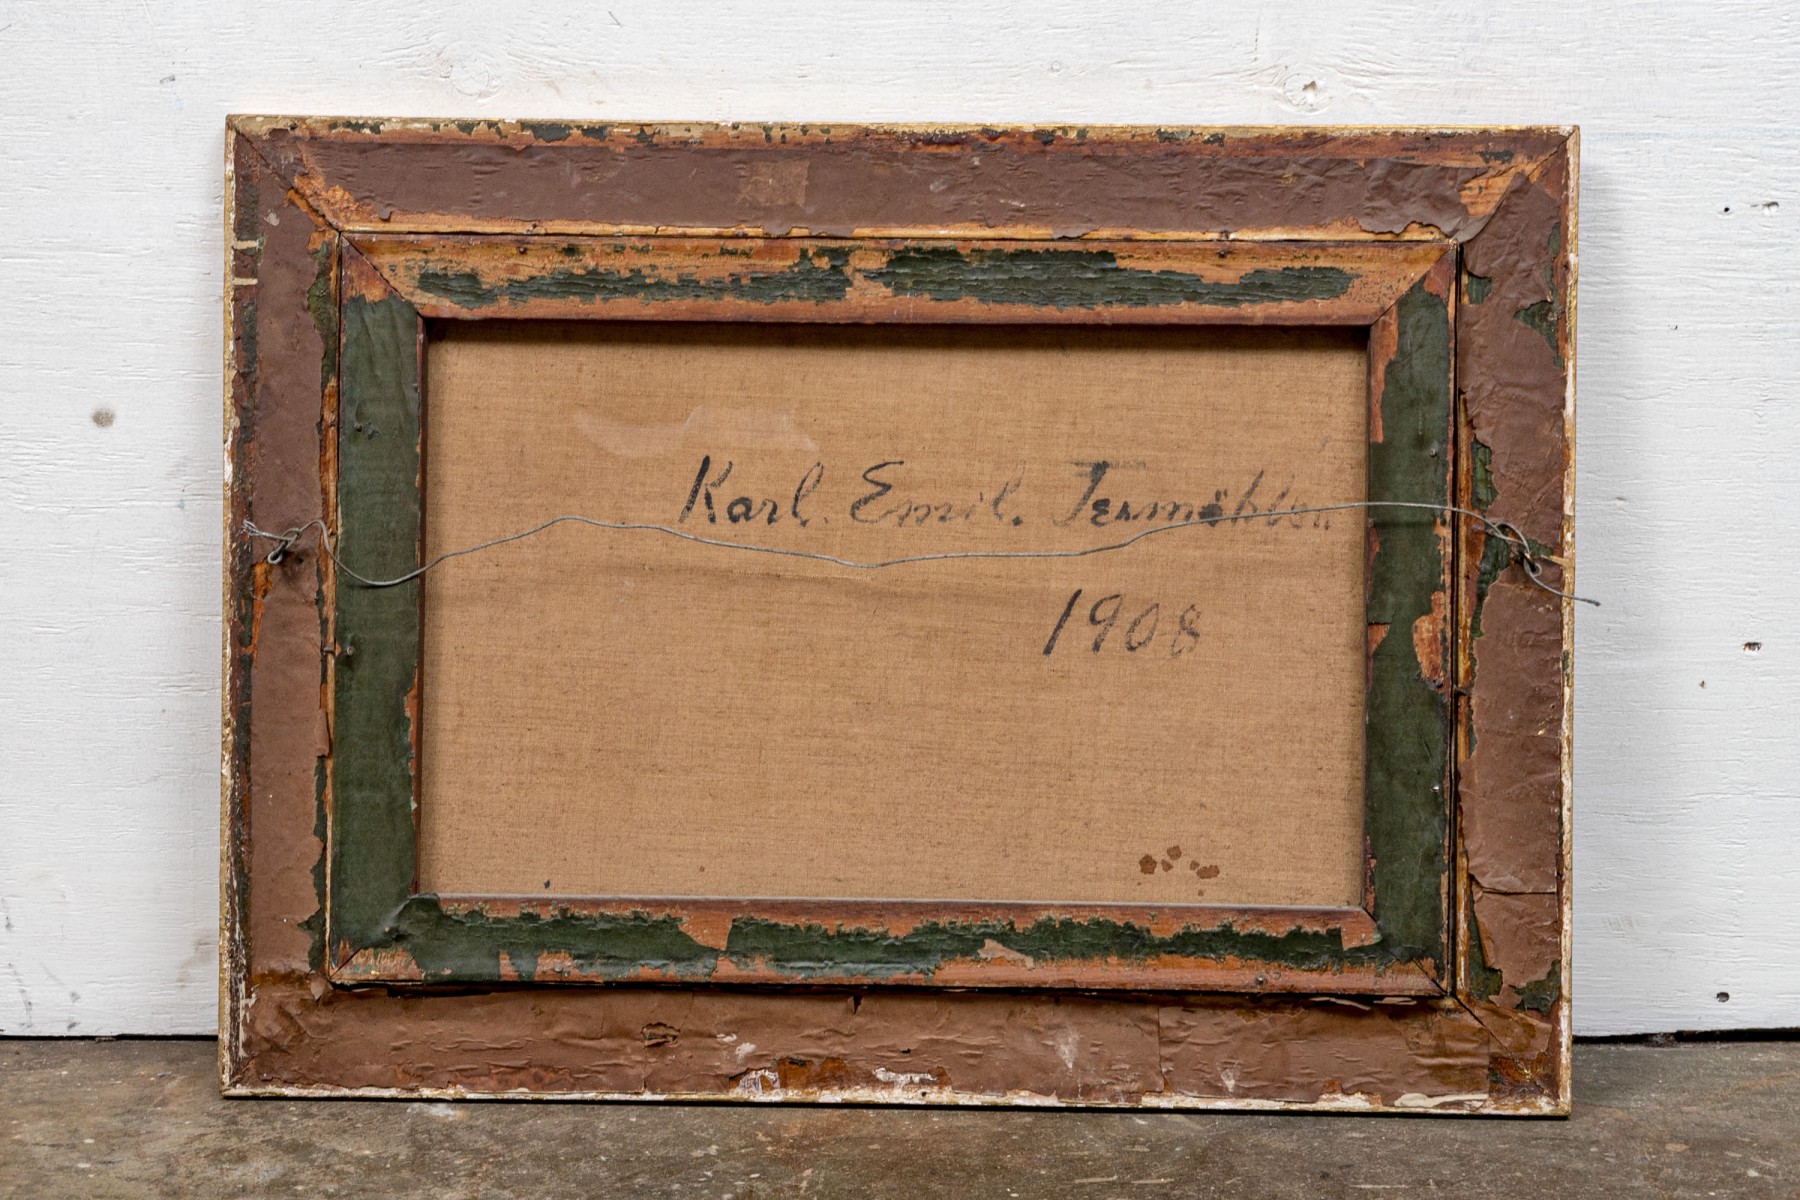 Karl. Emil. Termöhlen.
1908